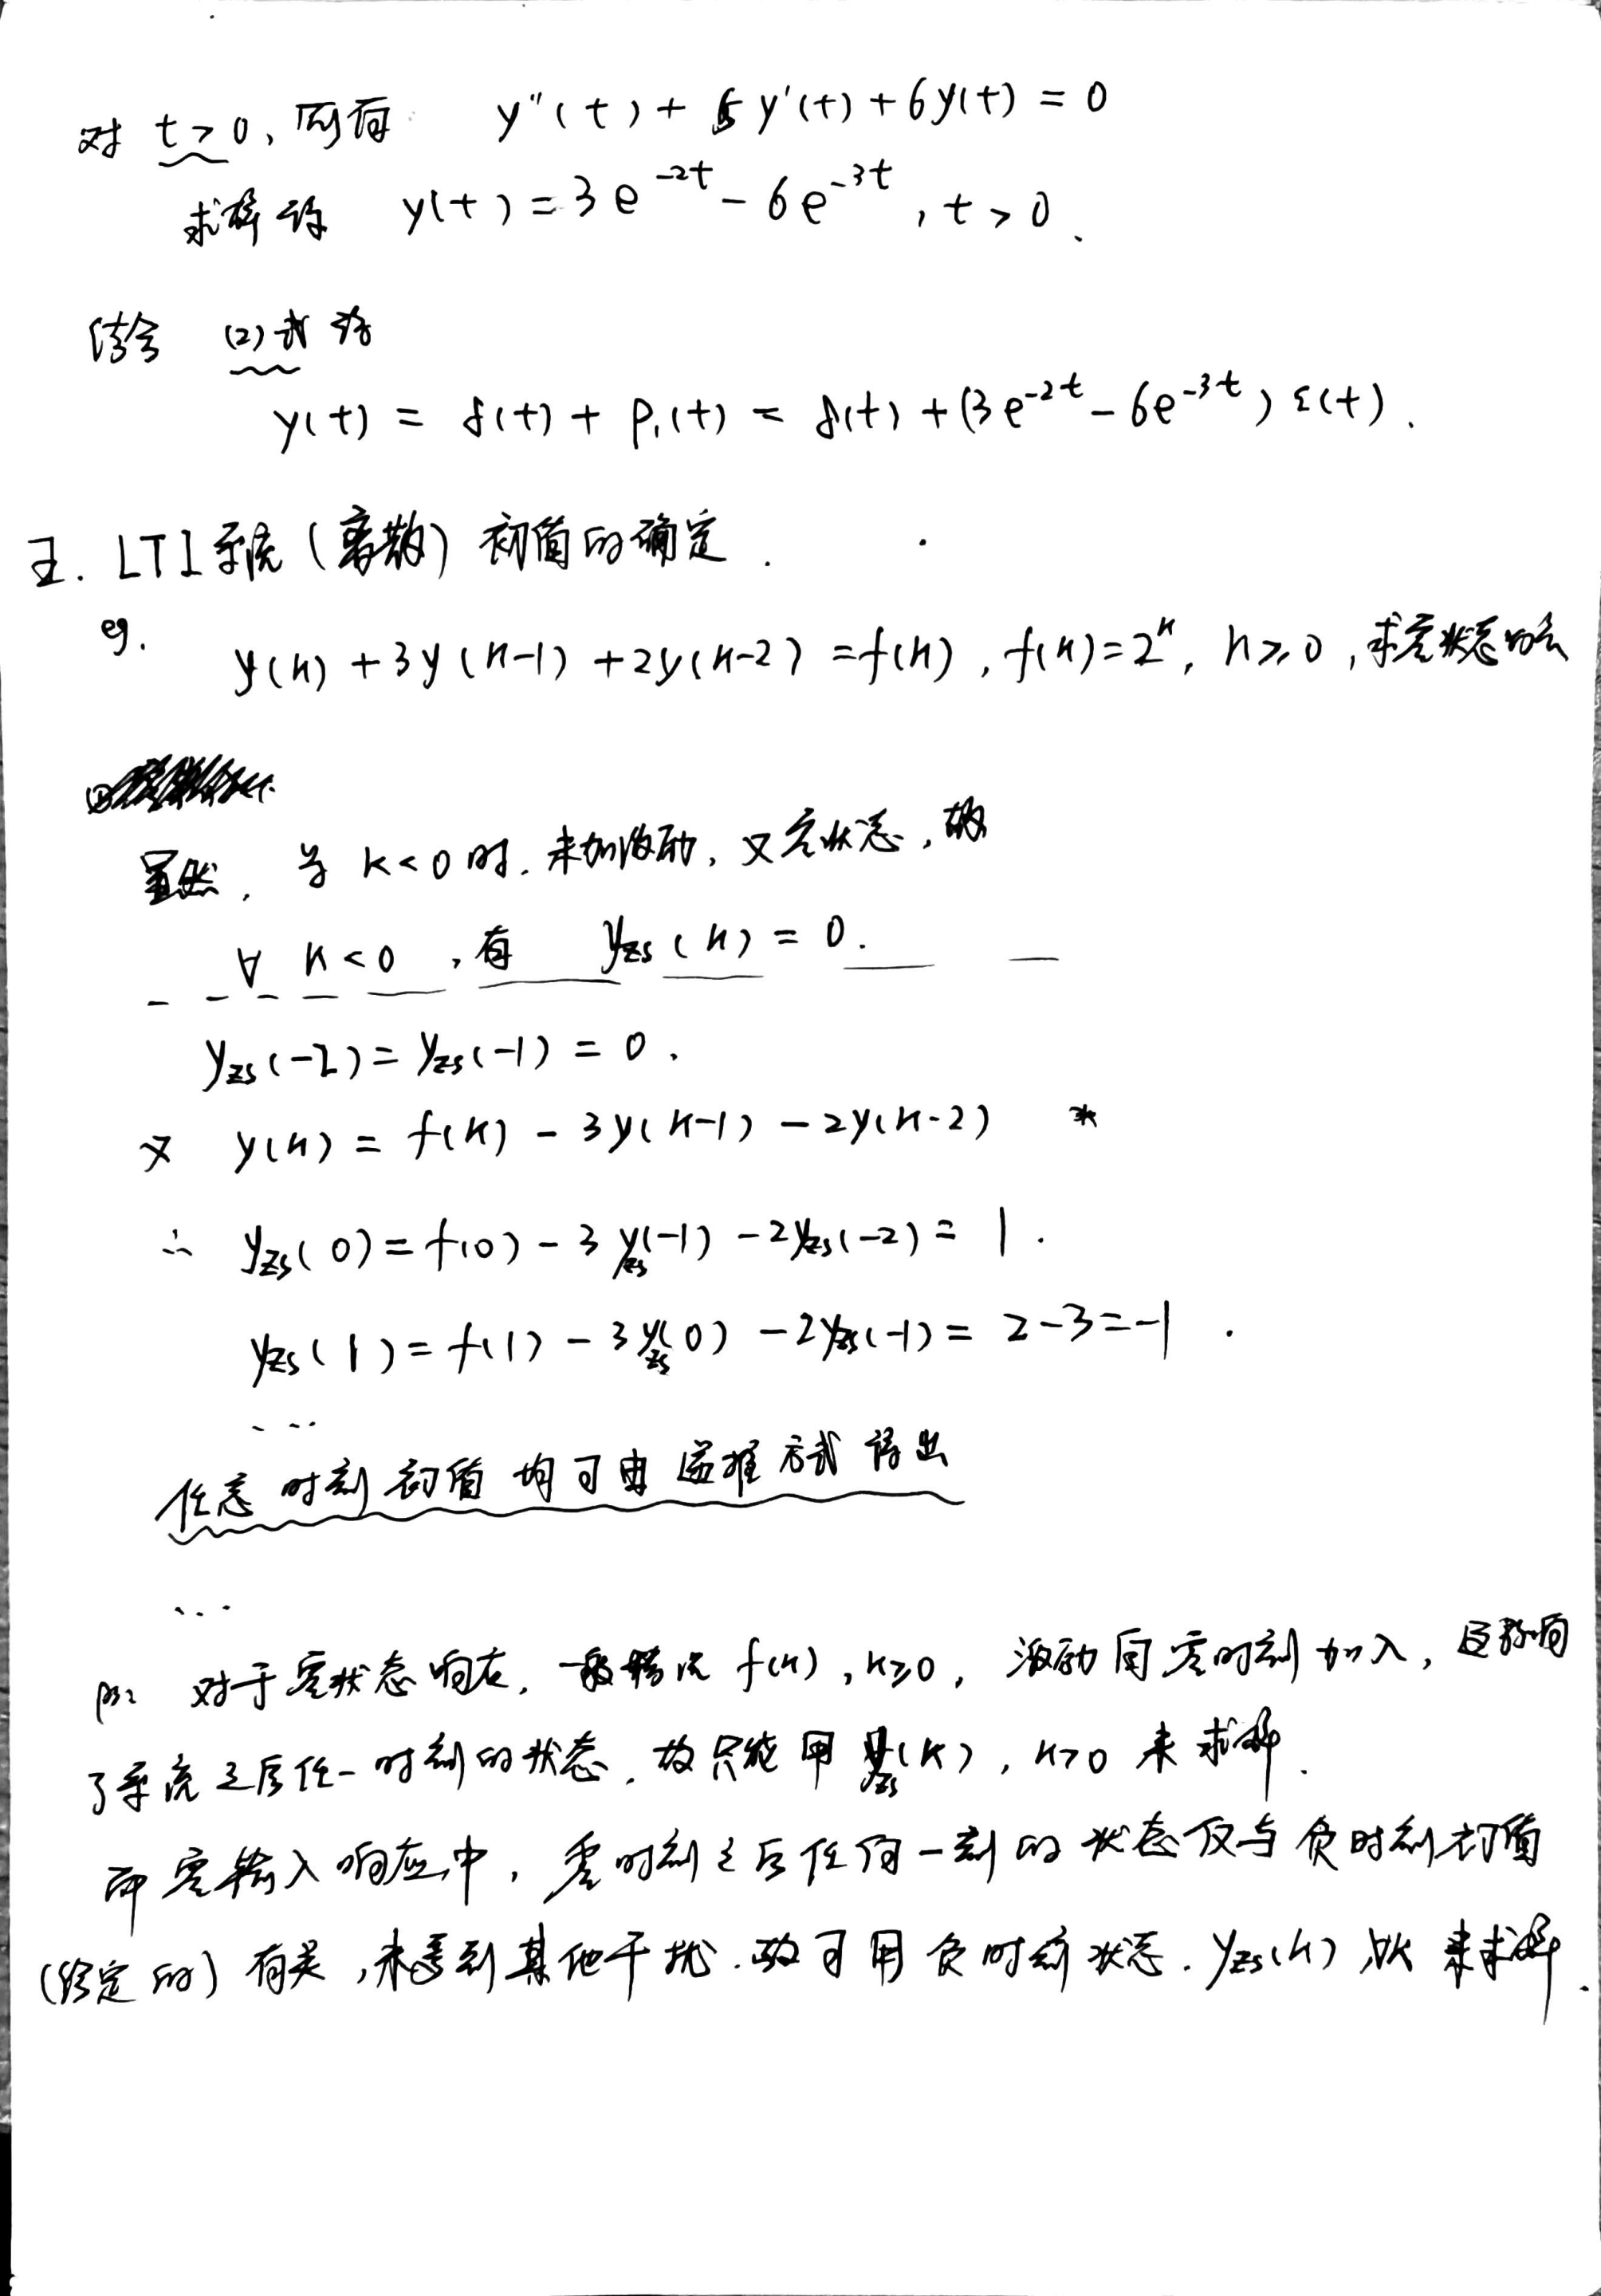 对 t>0, 同有 y''(t) + 5y'(t) + 6y(t) = 0
求解得 y(t) = 3e^{-2t} - 6e^{-3t}, t>0.
结合 (2)式得
y(t) = δ(t) + p₁(t) = δ(t) + (3e^{-2t} - 6e^{-3t}) ε(t).
五. LTI系统(离散) 初值的确定.
eg. y(k) + 3y(k-1) + 2y(k-2) = f(k), f(k)=2^k, k≥0, 求零状态响应
显然, 当 k<0 时. 未加激励, 又零状态, 故
∀ k<0, 有 y_{zs}(k) = 0.
y_{zs}(-2) = y_{zs}(-1) = 0.
又 y(k) = f(k) - 3y(k-1) - 2y(k-2) *
∴ y_{zs}(0) = f(0) - 3y_{zs}(-1) - 2y_{zs}(-2) = 1.
y_{zs}(1) = f(1) - 3y_{zs}(0) - 2y_{zs}(-1) = 2-3=-1.
...
任意时刻初值均可由递推方式得出
...
ps: 对于零状态响应, 一般情况 f(k), k≥0, 激动自零时刻加入, 影响
了系统之后任一时刻的状态, 故只能用 y_{zs}(k), k>0 来求解.
而零输入响应中, 零时刻之后任何一刻的状态仅与负时刻初值
(给定的) 有关, 未受到其他干扰. 故可用负时刻状态. y_{zs}(k) 来求解.